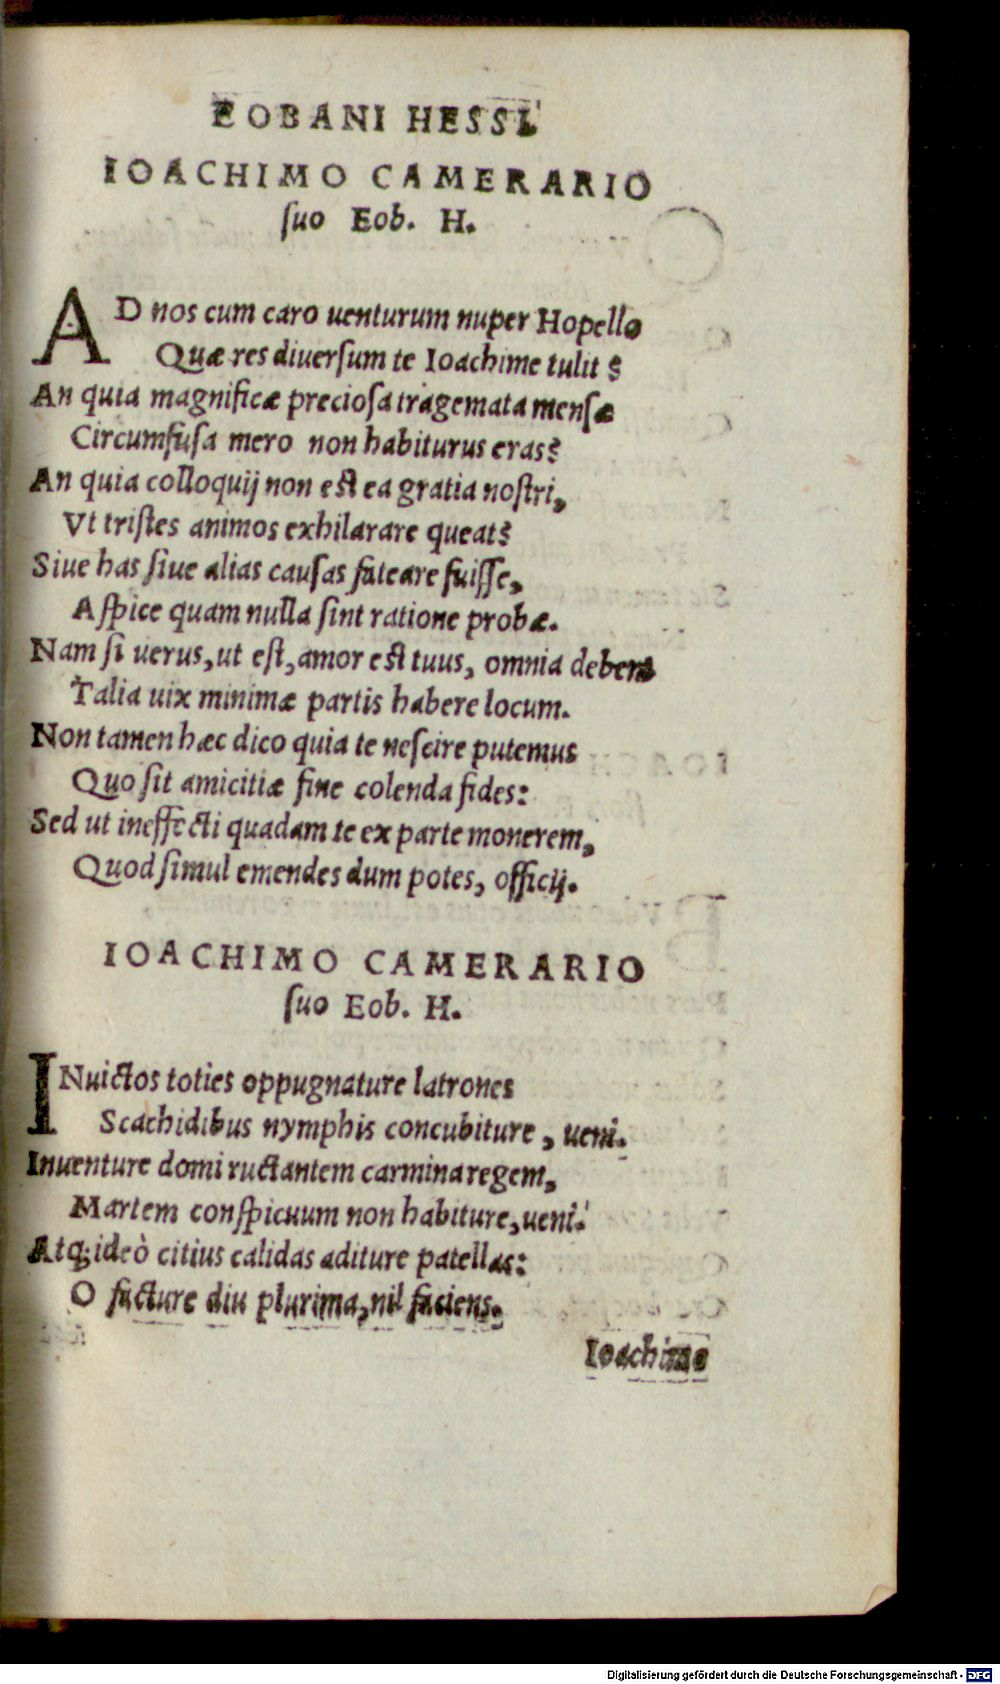 EOBANI HESSI
IOACHIMO CAMERARIO
ſuo Eob. H.
AD nos cum caro uenturum nuper Hopello
Quæ res diuerſum te Ioachime tulit?
An quia magnificæ precioſa tragemata menſæ
Circumfuſa mero non habiturus eras?
An quia colloquij non eſt ea gratia noſtri,
Vt triſtes animos exhilarare queat?
Siue has ſiue alias cauſas fateare fuiſſe,
Aſpice quam nulla ſint ratione probæ.
Nam ſi uerus, ut eſt, amor eſt tuus, omnia debent
Talia uix minimæ partis habere locum.
Non tamen hæc dico quia te neſcire putemus
Quo ſit amicitiæ fine colenda fides:
Sed ut ineffecti quadam te ex parte monerem,
Quod ſimul emendes dum potes, officij.
IOACHIMO CAMERARIO
ſuo Eob. H.
INuictos toties oppugnature latrones
Scachidibus nymphis concubiture, ueni.
Inuenture domi ructantem carmina regem,
Martem conſpicuum non habiture, ueni.
Atq; ideò citius calidas aditure patellas:
O facture diu plurima, nil faciens.
Ioachimo
Digitalisierung gefördert durch die Deutsche Forschungsgemeinschaft - DFG